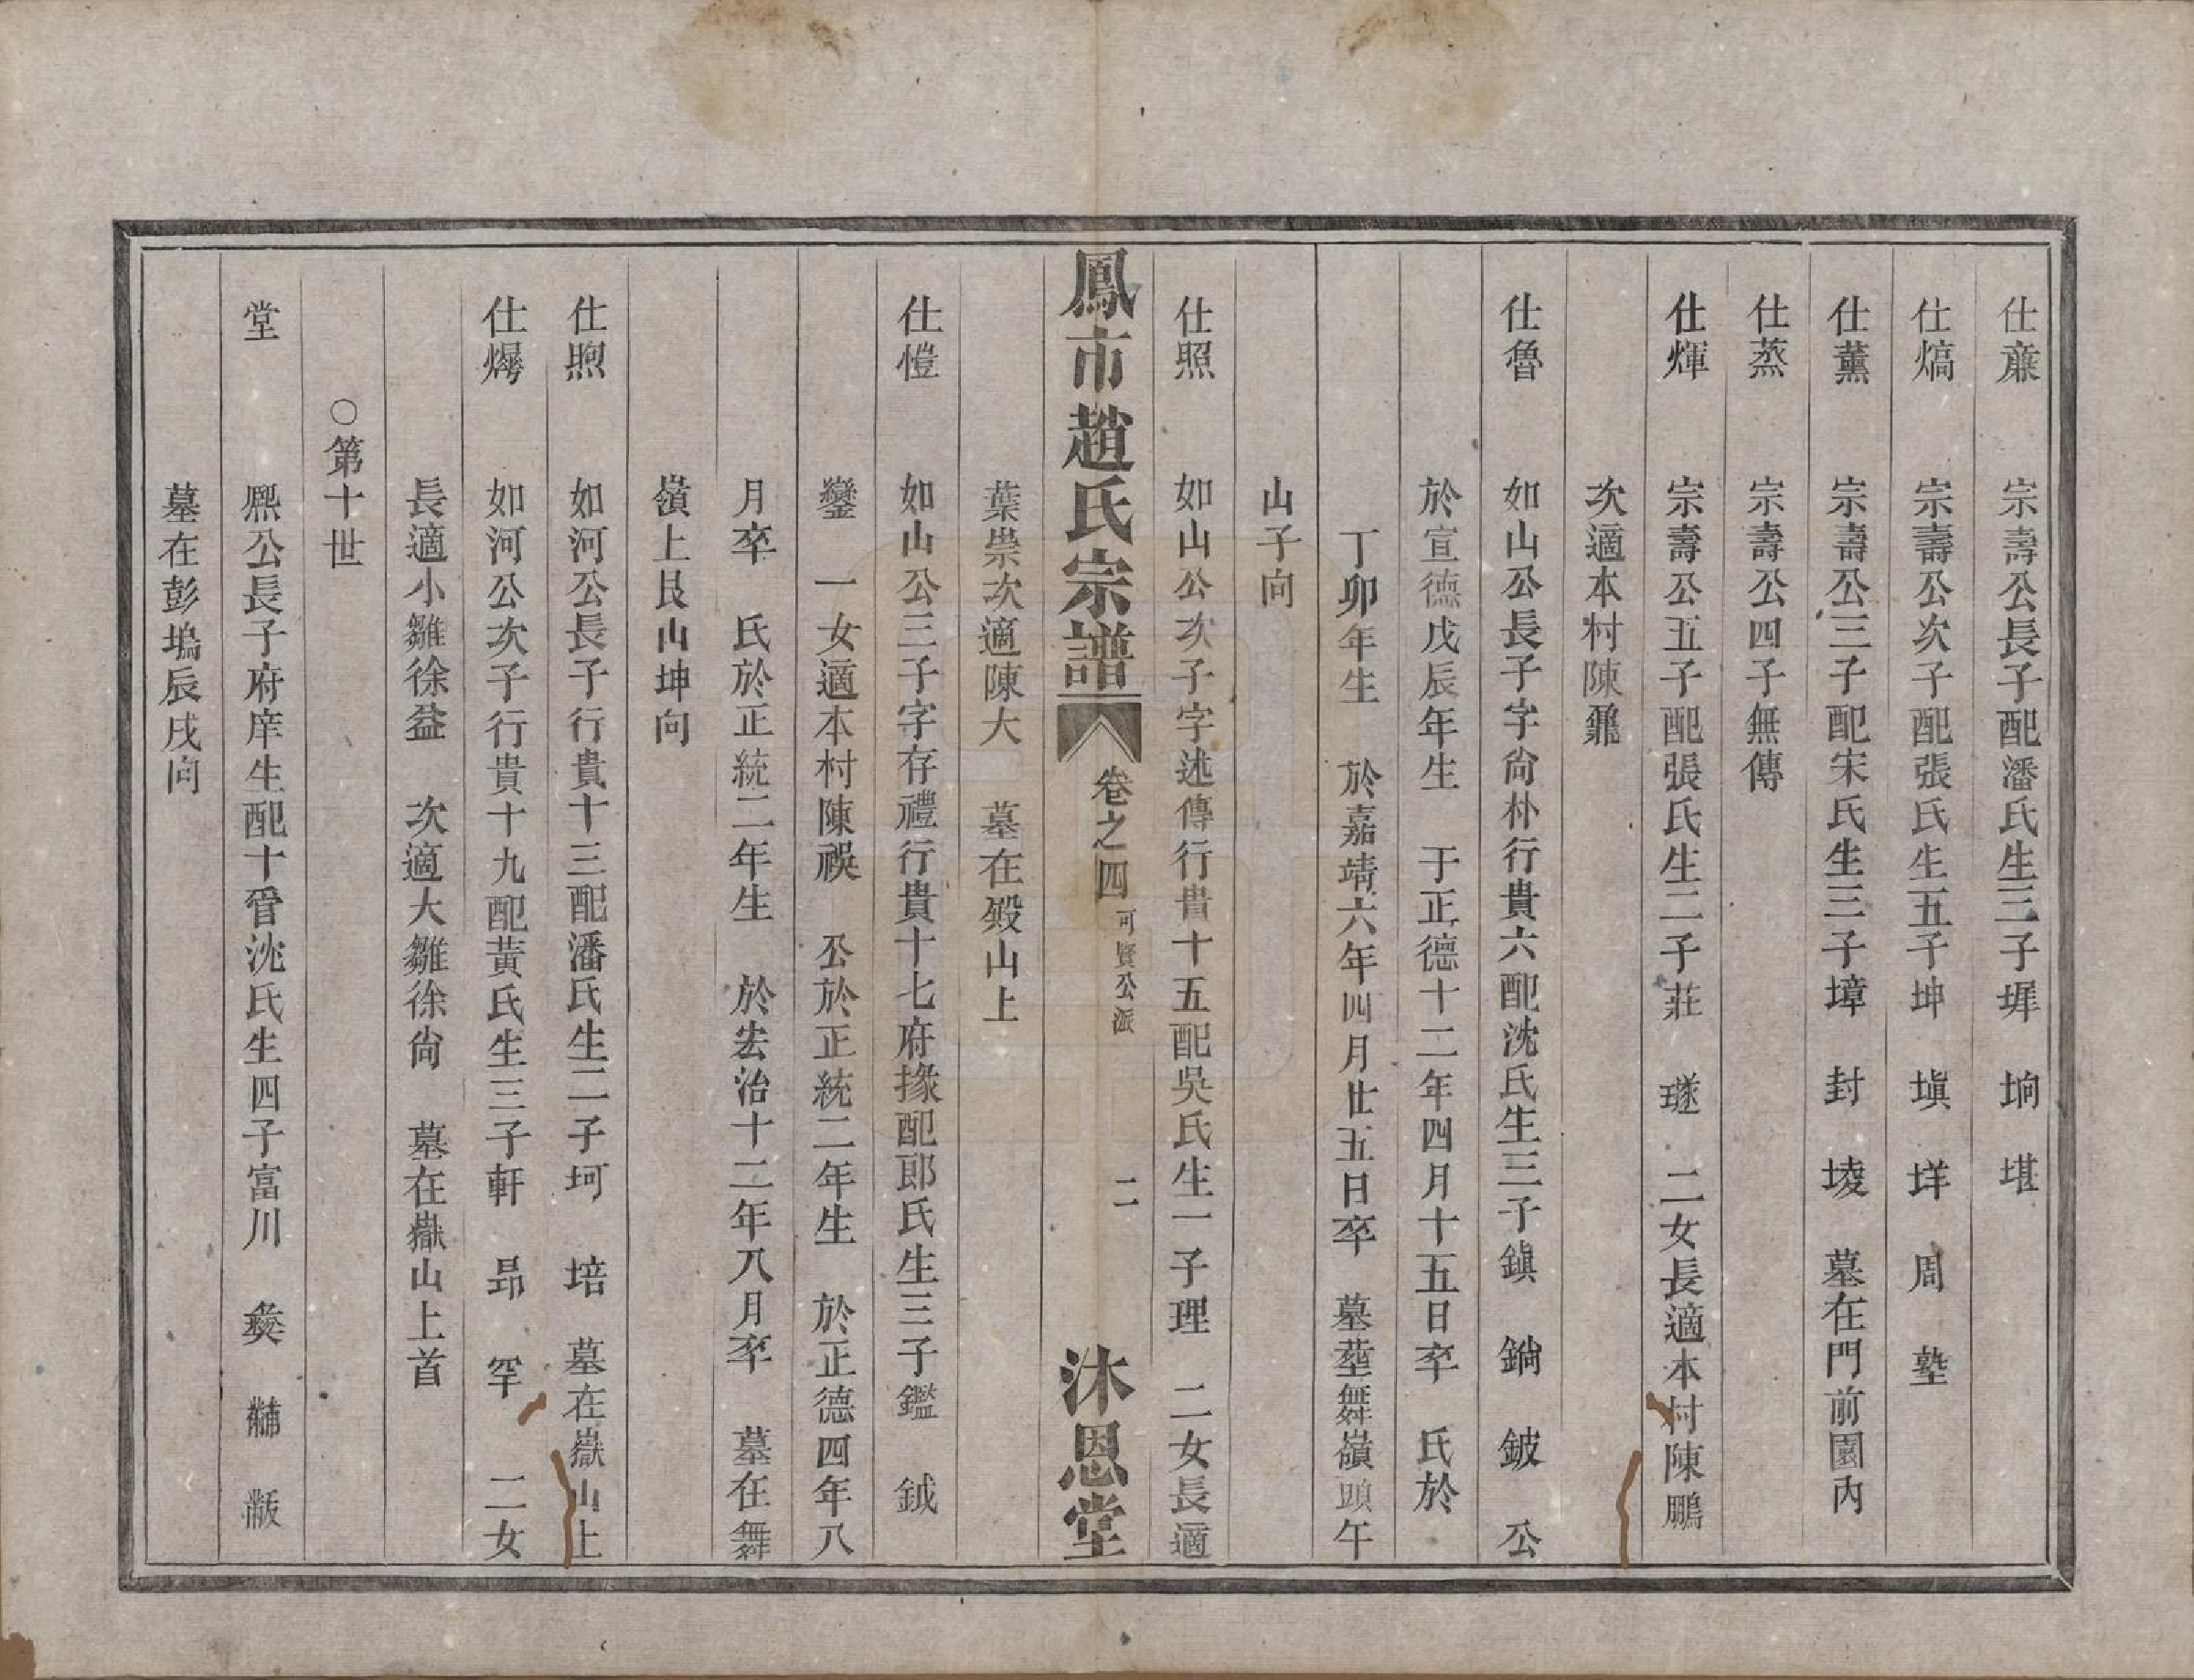 仕䕠 宗壽公長子配潘氏生三子墀 坰 堪
仕熇 宗壽公次子配張氏生五子坤 塡 垟 周 塾
仕薰 宗壽公三子配宋氏生三子墇 封 堎 墓在門前園內
仕蒸 宗壽公四子無傳
仕煇 宗壽公五子配張氏生二子莊 璲 二女長適本村陳鵬
次適本村陳鼐
仕魯 如山公長子字尙朴行貴六配沈氏生三子鎭 鏋 鈹 公
於宣德戊辰年生 于正德十二年四月十五日卒 氏於
丁卯年生 於嘉靖六年四月廿五日卒 墓塟舞嶺頭午
山子向
仕照 如山公次子字述傳行貴十五配吳氏生一子理 二女長適
葉崇次適陳大 墓在殿山上
鳳市趙氏宗譜 卷之四 可賢公派 二 沐恩堂
仕愷 如山公三子字存禮行貴十七府掾配郎氏生三子鑑 鉞
鑾 一女適本村陳祦 公於正統二年生 於正德四年八
月卒 氏於正統二年生 於宏治十二年八月卒 墓在舞
嶺上艮山坤向
仕煦 如河公長子行貴十三配潘氏生二子坷 培 墓在嶽山上
仕爗 如河公次子行貴十九配黃氏生三子軒 昻 罕 二女
長適小雛徐益 次適大雛徐尙 墓在嶽山上首
○第十世
堂 熈公長子府庠生配十晉沈氏生四子富川 彜 黼 黻
墓在彭塢辰戌向